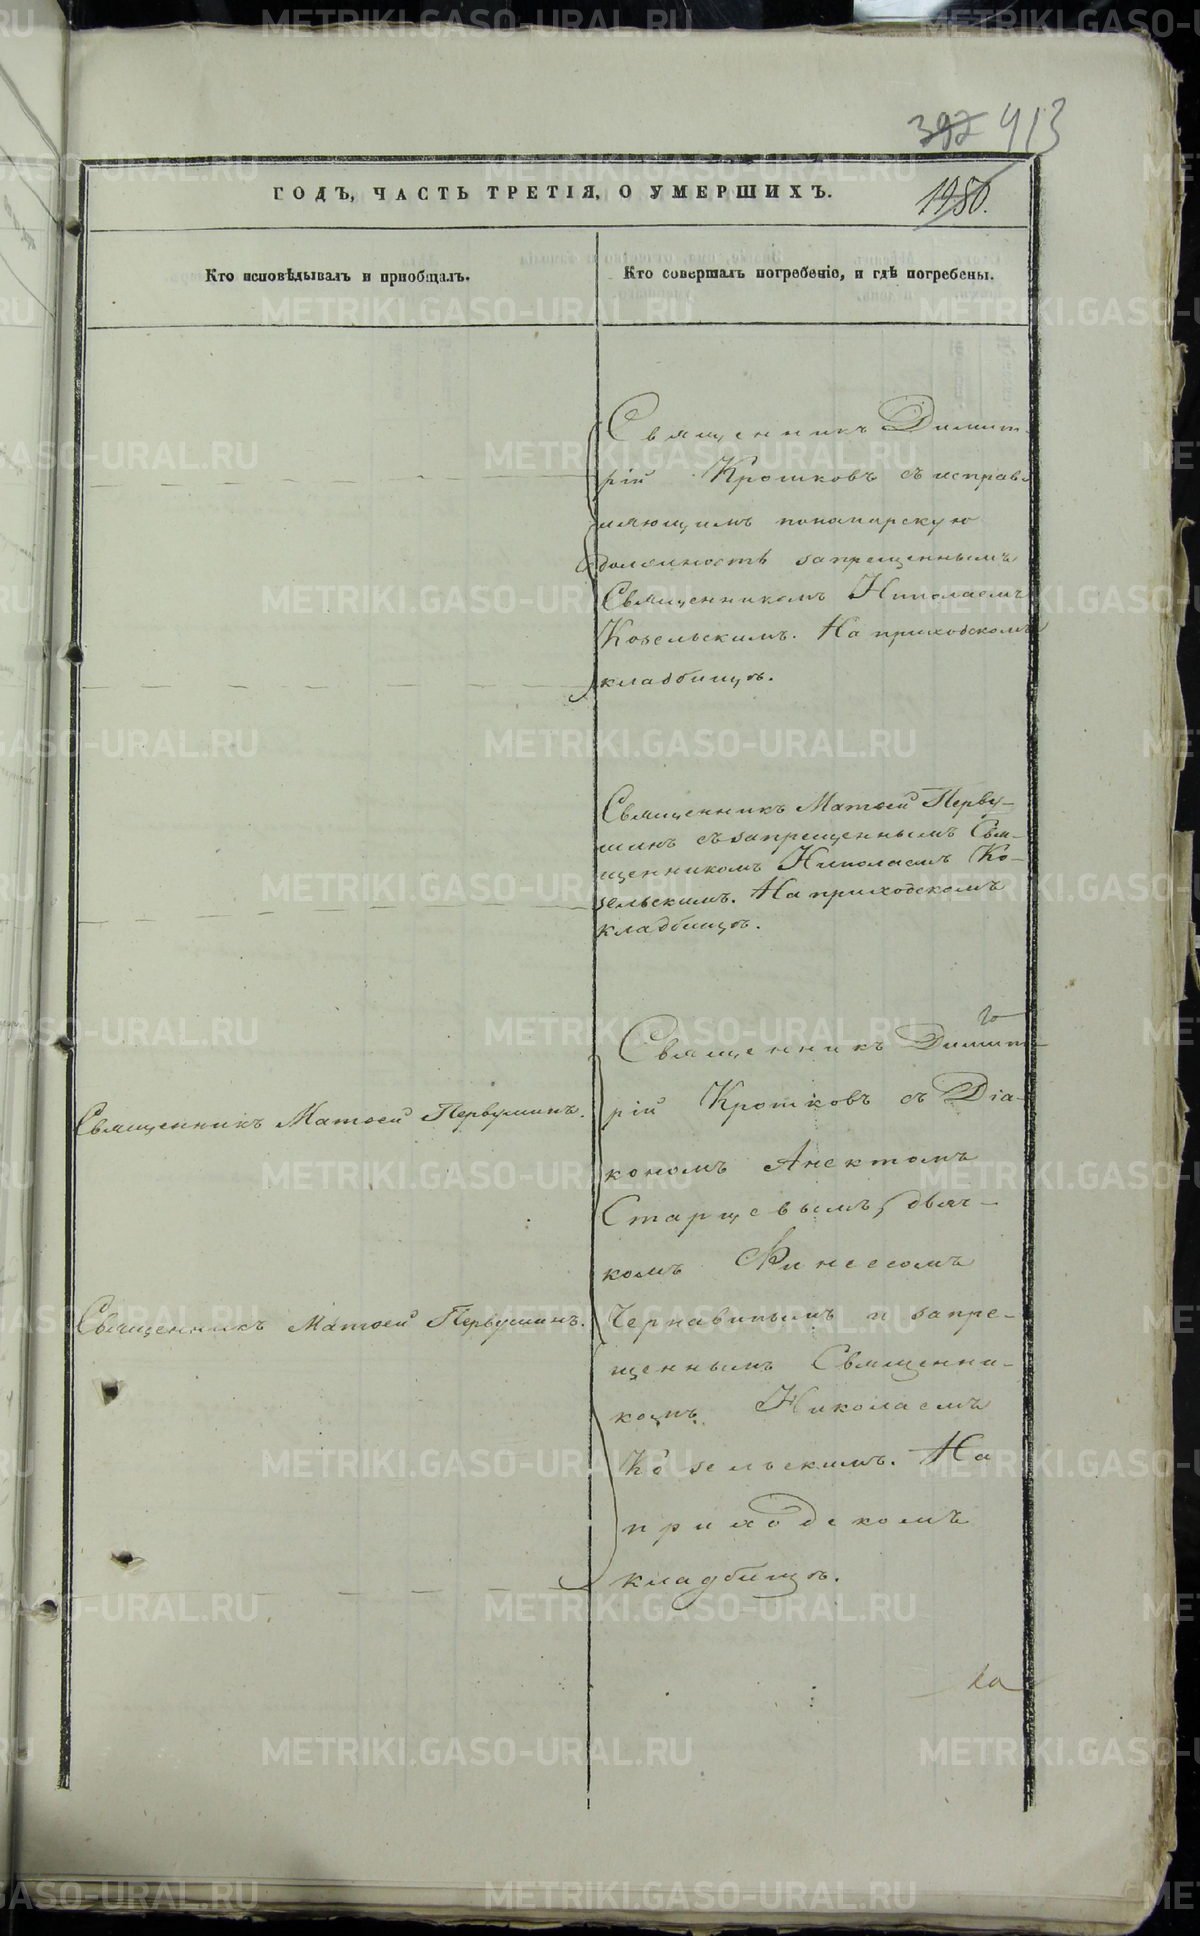 392 413
ГОДЪ, ЧАСТЬ ТРЕТІЯ, О УМЕРШИХЪ.
1980.
Кто исповѣдывалъ и пріобщалъ.
Кто совершалъ погребеніе, и гдѣ погребены.
Священникъ Димит-
рій Кротковъ съ исправ-
ляющимъ понамарскую
должность запрещеннымъ
Священникомъ Николаемъ
Козельскимъ. На приходскомъ
кладбищѣ.
Священникъ Матѳей Перву-
шинъ съ запрещеннымъ Свя-
щенникомъ Николаемъ Ко-
зельскимъ. На приходскомъ
кладбищѣ.
Священникъ Матѳей Первушинъ.
Священникъ Матѳей Первушинъ.
Священникъ Димит-
рій Кротковъ съ Діа-
кономъ Анектомъ
Старцевымъ, дьяч-
комъ Финеесомъ
Чернавинымъ и запре-
щеннымъ Священни-
комъ Николаемъ
Козельскимъ. На
приходскомъ
кладбищѣ.
METRIKI.GASO-URAL.RU